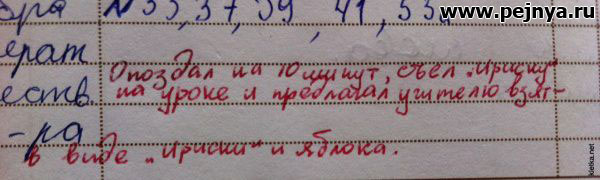 www.pejnya.ru
бра № 35, 37, 39, 41, 53
ерат
Опоздал на 10 минут, съел „Ириску"
еств. на уроке и предлагал учителю взят-
-ра
в виде „Ириски" и яблока.
kletka.net